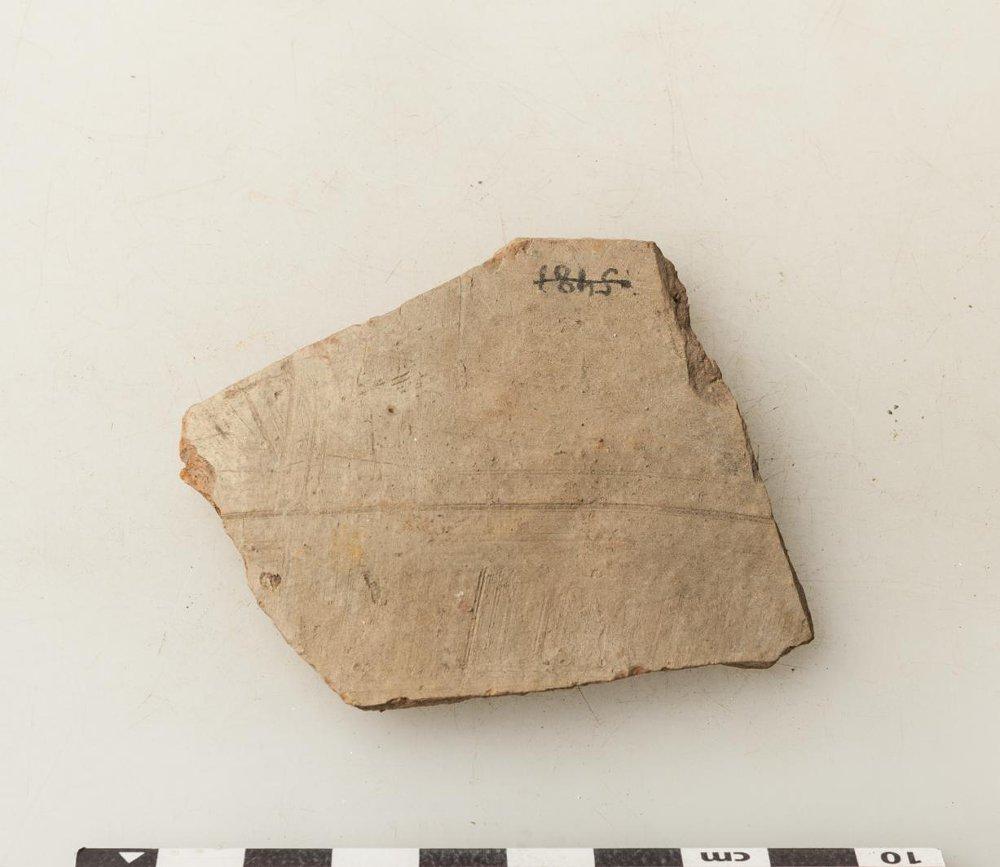 5481
cm
10